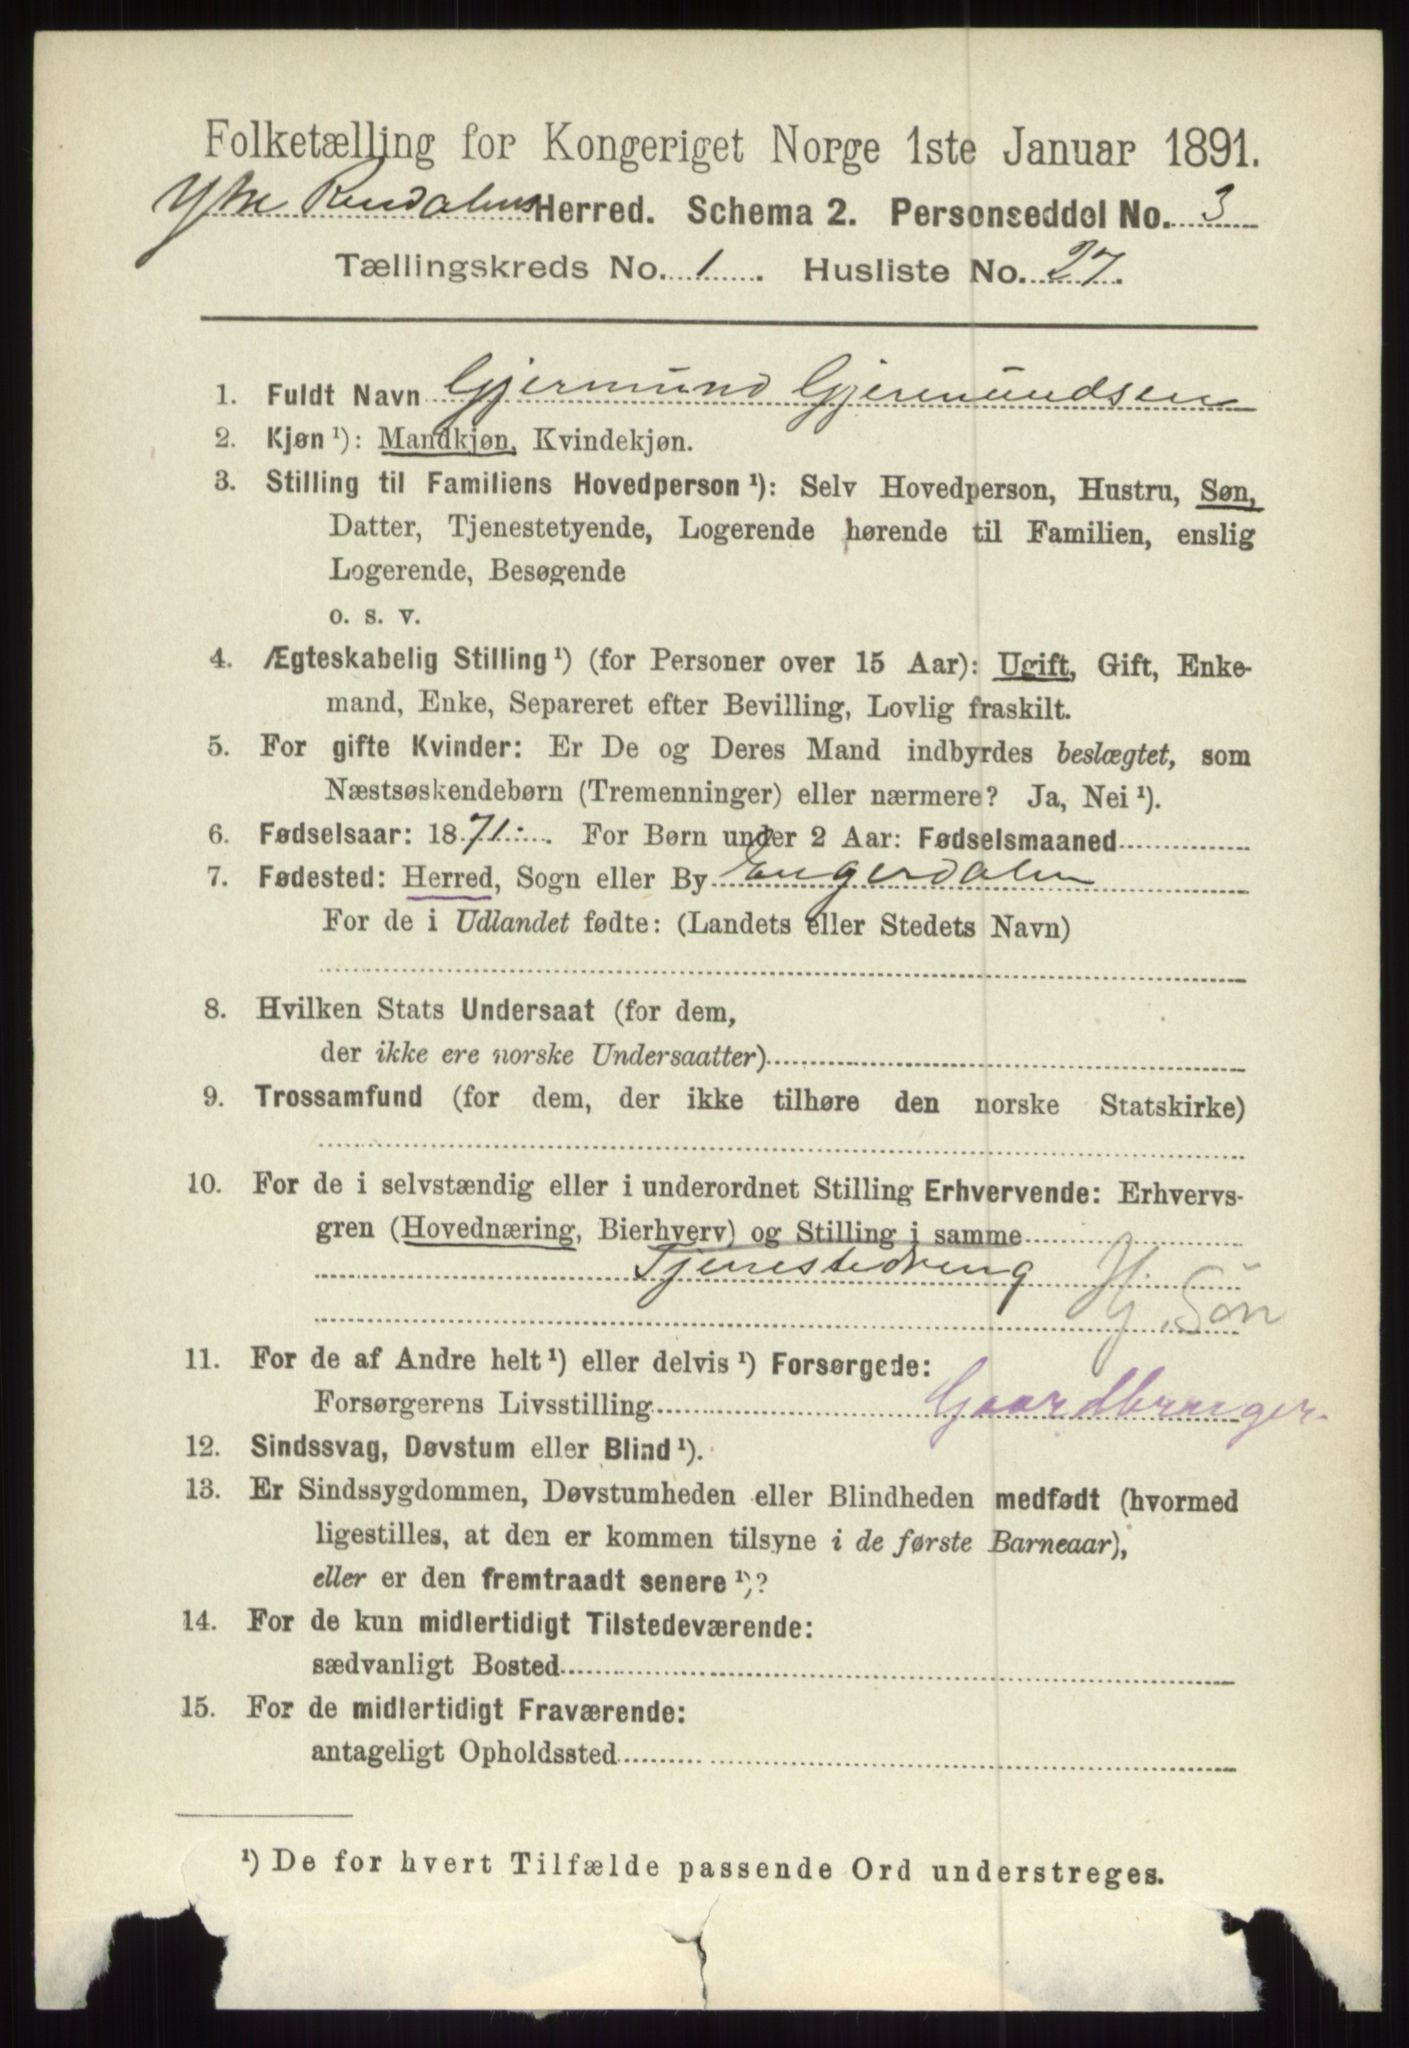 Folketælling for Kongeriget Norge 1ste Januar 1891.
Ytre Rendalens Herred. Schema 2. Personseddel No. 3
Tællingskreds No. 1. Husliste No. 27.
1. Fuldt Navn Gjermund Gjermundsen
2. Kjøn ¹): Mandkjøn, Kvindekjøn.
3. Stilling til Familiens Hovedperson ¹): Selv Hovedperson, Hustru, Søn,
Datter, Tjenestetyende, Logerende hørende til Familien, enslig
Logerende, Besøgende
o. s. v.
4. Ægteskabelig Stilling ¹) (for Personer over 15 Aar): Ugift, Gift, Enke-
mand, Enke, Separeret efter Bevilling, Lovlig fraskilt.
5. For gifte Kvinder: Er De og Deres Mand indbyrdes beslægtet, som
Næstsøskendebørn (Tremenninger) eller nærmere? Ja, Nei ¹).
6. Fødselsaar: 1871. For Børn under 2 Aar: Fødselsmaaned
7. Fødested: Herred, Sogn eller By Engerdalen
For de i Udlandet fødte: (Landets eller Stedets Navn)
8. Hvilken Stats Undersaat (for dem,
der ikke ere norske Undersaatter)
9. Trossamfund (for dem, der ikke tilhøre den norske Statskirke)
10. For de i selvstændig eller i underordnet Stilling Erhvervende: Erhvervs-
gren (Hovednæring, Bierhverv) og Stilling i samme
Tjenestedreng Hj. Søn
11. For de af Andre helt ¹) eller delvis ¹) Forsørgede:
Forsørgerens Livsstilling Gaardbruger.
12. Sindssvag, Døvstum eller Blind ¹).
13. Er Sindssygdommen, Døvstumheden eller Blindheden medfødt (hvormed
ligestilles, at den er kommen tilsyne i de første Barneaar),
eller er den fremtraadt senere ¹)?
14. For de kun midlertidigt Tilstedeværende:
sædvanligt Bosted
15. For de midlertidigt Fraværende:
antageligt Opholdssted
¹) De for hvert Tilfælde passende Ord understreges.